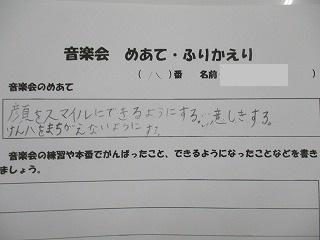 音楽会 めあて・ふりかえり
( 八 )番 名前
音楽会のめあて
顔をスマイルにできるようにする。…意しきする。
けん八をまちがえないように
音楽会の練習や本番でがんばったこと、できるようになったことなどを書き
ましょう。